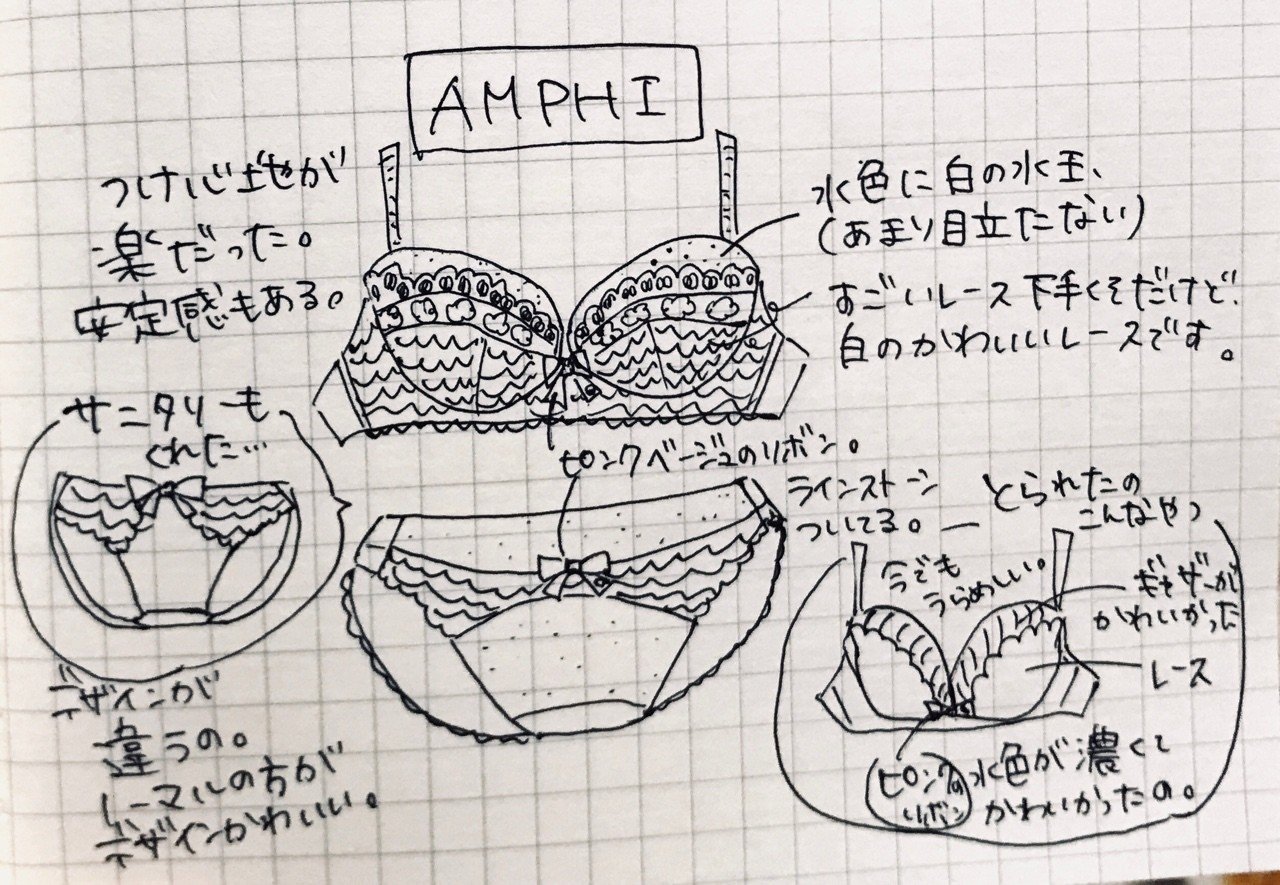 AMPHI
つけ心地が
楽だった。
安定感もある。
水色に白の水玉、
(あまり目立たない)
すごいレース下手くそだけど、
白のかわいいレースです。
サニタリーも
くれた…
ピンクベージュのリボン。
ラインストーン
ついてる。
とられたの
こんなやつ
今でも
うらめしい。
ギャザーが
かわいかった
レース
ピンクの
リボン
水色が濃くて
かわいかったの。
デザインが
違うの。
ノーマルの方が
デザインかわいい。